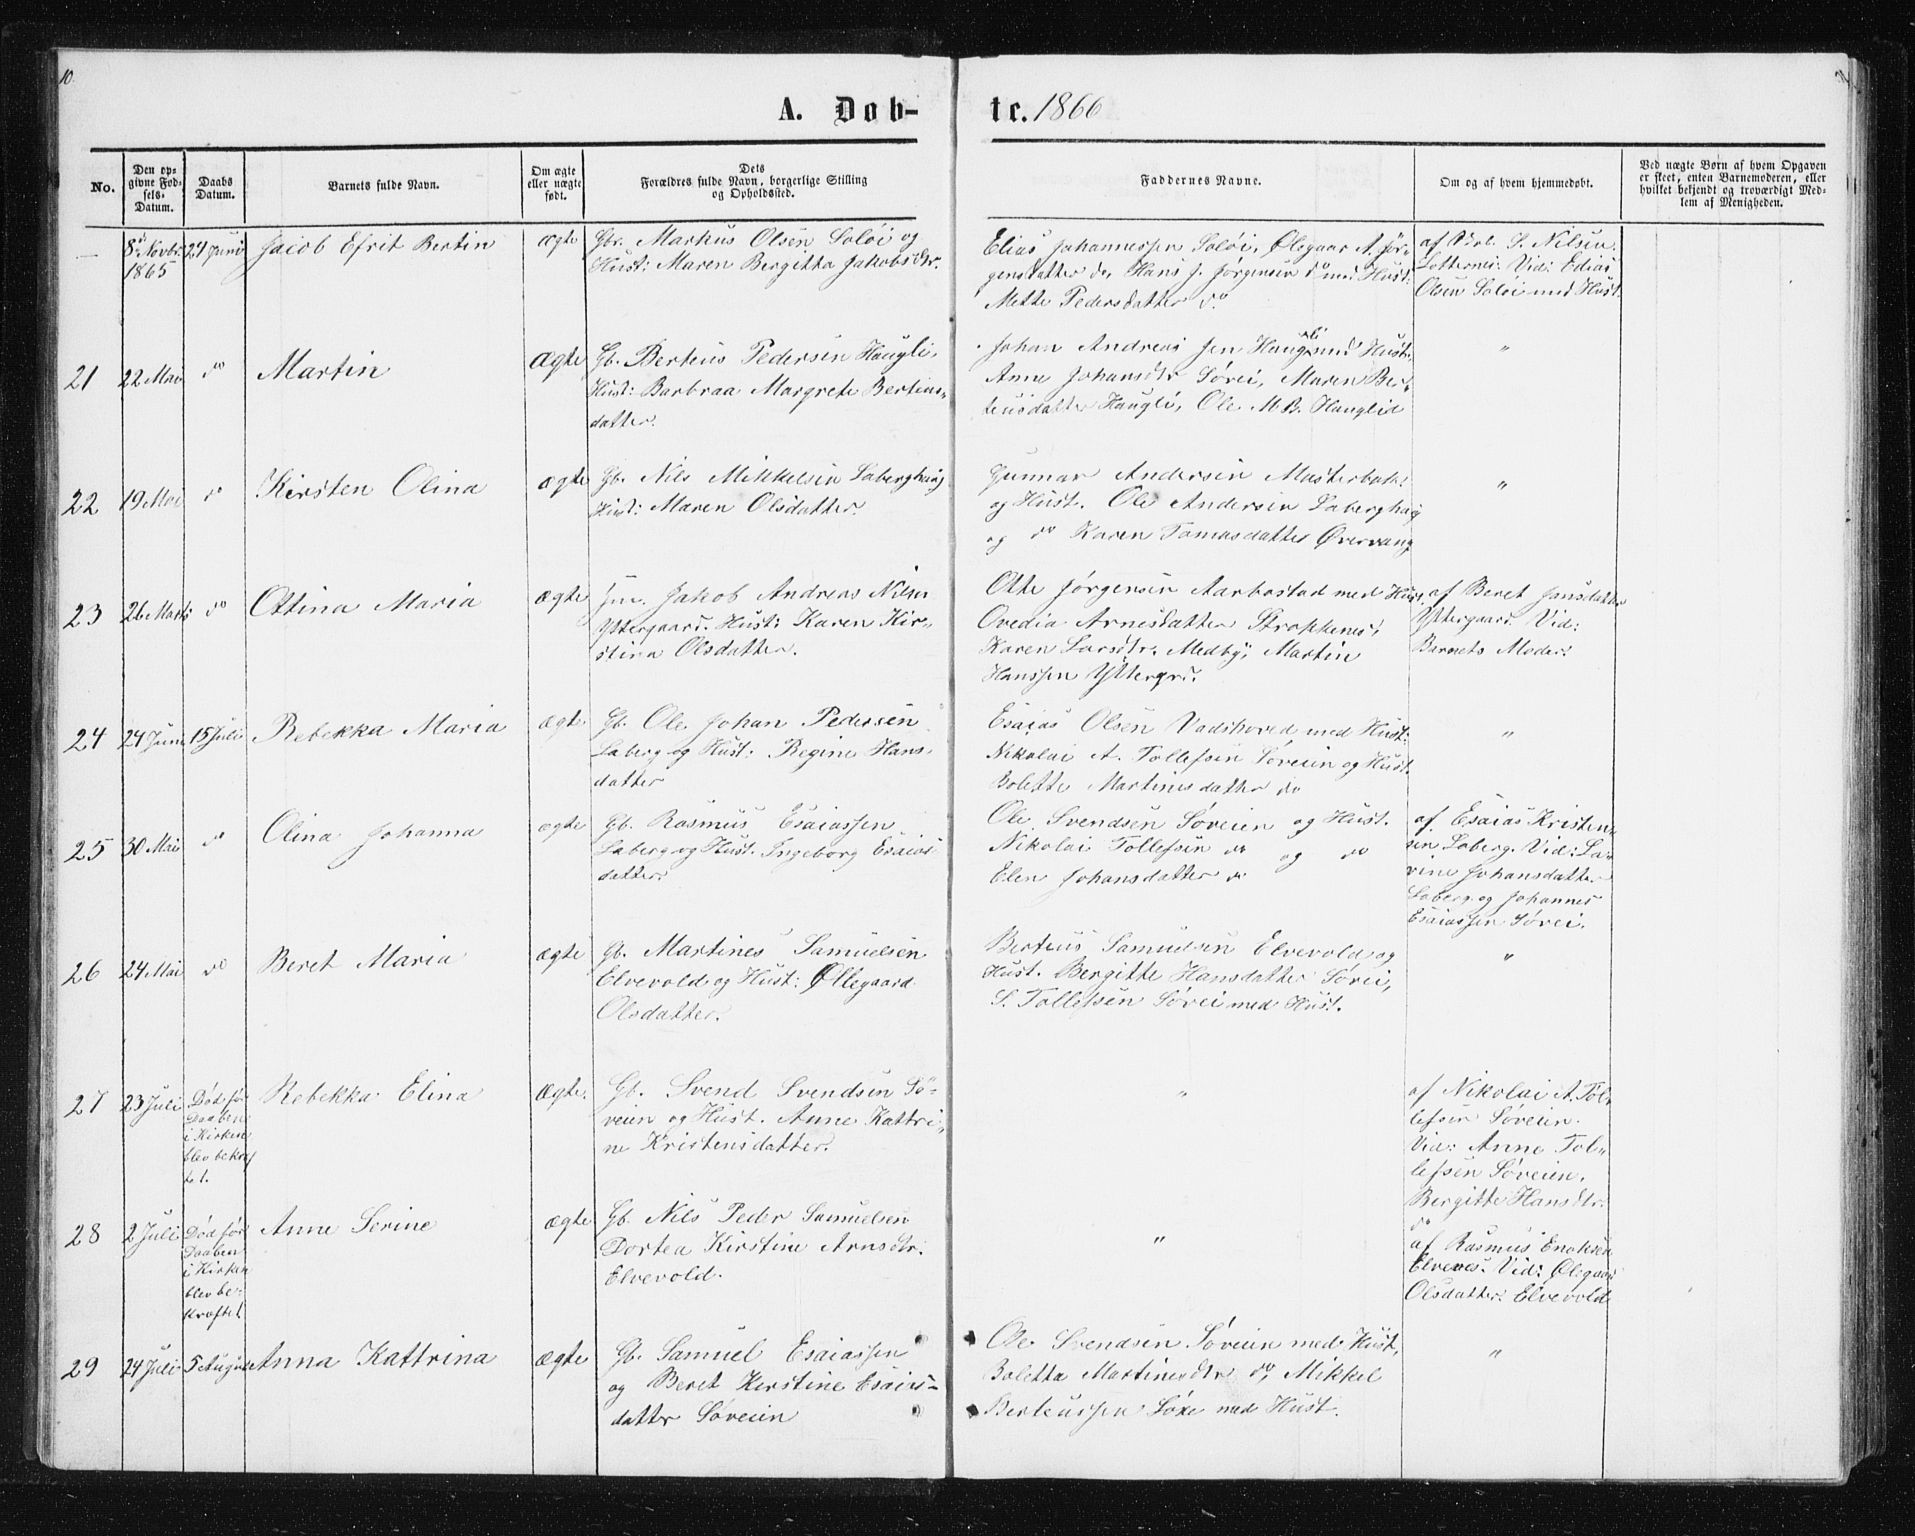 10.
A. Døb-
te. 1866
No.
Den op-
givne Fød-
sels-
Datum.
Daabs
Datum.
Barnets fulde Navn.
Om ægte
eller uægte
født.
Dets
Forældres fulde Navn, borgerlige Stilling
og Opholdssted.
Faddernes Navne.
Om og af hvem hjemmedøbt.
Ved uægte Børn af hvem Opgaven
er skeet, enten Barnemoderen, eller
hvilket bekjendt og troværdigt Med-
lem af Menigheden.
—
8de Novbr.
1865
24 Juni
Jacob Efrit Bertin
ægte
Gbr. Markus Olsen Soløi og
Hust: Maren Bergitha Jakobsdtr.
Elias Johannessen Soløi, Ølegaar A. Jør-
gensdatter do, Hans J. Jørgensen do med Hust:
Mette Pedersdatter do
af S. Nilsen
Vid: Edias
Olsen Soløi med Hust.
21
22 Mai
do
Martin
Ægte
Gb. Berteus Pedersen Haugli,
Hust: Barbraa Margrete Berteus-
datter.
Johan Andreas Jen Haugli med Hust.
Anne Johansdtr Sørei, Maren Ber-
teusdatter Haugli, Ole M B. Hauglid
"
22
19 Mai
do
Kirsten Olina
ægte
Gb. Nils Mikkelsen Laberghaug
Hust: Maren Olsdatter.
Gunnar Andersen Masterbak
og Hust. Ole Andersen Laberghaug
og do Karen Tomasdatter Øvervang
"
23
26 Marts
do
Ottina Maria
ægte
Jakob Andreas Nilsen
Yttergaard. Hust: Karen Kir-
stina Olsdatter.
Otte Jørgensen Aarbostad med Hust.
Ovedia Arnesdatter Strokkenes,
Karen Larsdtr. Medby, Martin
Hanssen Yttergrd.
af Beret Jansdatter
Yttergaard Vid:
Barnets Moder.
24
24 Juni
15 Juli
Rebekka Maria
ægte
Gb. Ole Johan Pedersen
Laberg og Hust: Regine Hans-
datter
Esaias Olsen Vadshoved med Hust:
Nikolai A. Tollefsen Søveien og Hust.
Bolette Martinesdatter do
"
25
30 Mai
do
Olina Johanna
ægte
Gb. Rasmus Esaiassen
Laberg og Hust. Ingeborg Esaias
datter.
Ole Svendsen Søveien og Hust.
Nikolai Tollefsen do og do
Elen Johansdatter do
af Esaias Kristen-
sen Laberg. Vid: La-
vine Johansdatter
Laberg og Johannes
Esaiassen Sørei.
26
24 Mai
do
Beret Maria
ægte
Gb. Martines Samuelsen
Elvevold og Hust: Øllegaard
Olsdatter.
Berteus Samuelsen Elvevold og
Hust. Bergitte Hansdatter Sørei,
S. Tollefsen Sørei med Hust.
"
27
23 Juli
Død før
Daaben
i Kirken
blev bekræf
tet.
Rebekka Elina
ægte.
Gb. Svend Svendsen Sø-
veien og Hust. Anne Kattri-
ne Kristensdatter.
"
af Nikolai A. Tol-
lefsen Søveien.
Vid: Anne Tol-
lefsen Søveien,
Bergitte Hansdtr.
do
28
2 Juli
Død før
Daaben
i Kirken
blev be-
kræftet
Anne Serine
ægte
Gb. Nils Peder Samuelsen
Dortea Kirstine Arnsdtr.
Elvevold.
"
af Rasmus Enoksen
Elvenes. Vid: Ølegaar
Olsdatter Elvevold
29
24 Juli
5 August
Anna Kattrina
ægte
Gb. Samuel Esaiassen
og Beret Kirstine Esaias-
datter Søveien
Ole Svendsen Søveien med Hust,
Boletta Martinesdtr do, Mikkel
Berteussen Soxe med Hust.
"